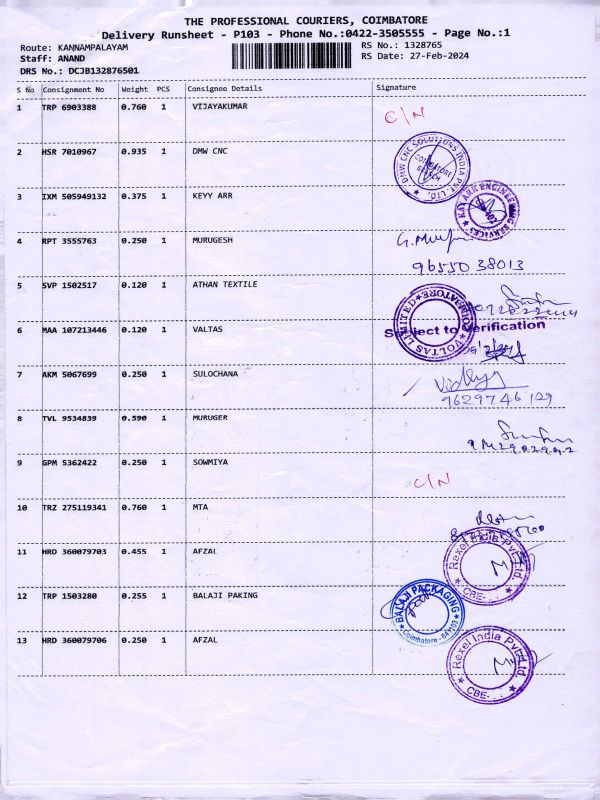 THE PROFESSIONAL COURIERS, COIMBATORE
Delivery Runsheet - P103 - Phone No.:0422-3505555 - Page No.:1
Route: KANNAMPALAYAM
RS No.: 1328765
Staff: ANAND
RS Date: 27-Feb-2024
DRS No.: DCJB132876501
S No Consignment No Weight PCS Consignee Details Signature
1 TRP 6903388 0.760 1 VIJAYAKUMAR C/N
2 HSR 7010967 0.935 1 DMW CNC
DMW CNC SOLUTIONS INDIA PVT. LTD.
COIMBATORE
3 IXM 505949132 0.375 1 KEYY ARR
ENGINEERING SERVICES
4 RPT 3555763 0.250 1 MURUGESH
96550 38013
5 SVP 1502517 0.120 1 ATHAN TEXTILE
6 MAA 107213446 0.120 1 VALTAS
VOLTAS LIMITED COIMBATORE
Subject to Verification
7 AKM 5067699 0.250 1 SULOCHANA
9629746129
8 TVL 9534839 0.590 1 MURUGER
9 GPM 5362422 0.250 1 SOWMIYA C/N
10 TRZ 275119341 0.760 1 MTA
11 HRD 360079703 0.455 1 AFZAL
Rexel India Pvt. Ltd.
CBE
12 TRP 1503280 0.255 1 BALAJI PAKING
BALAJI PACKAGING
Coimbatore
13 HRD 360079706 0.250 1 AFZAL
Rexel India Pvt. Ltd.
CBE